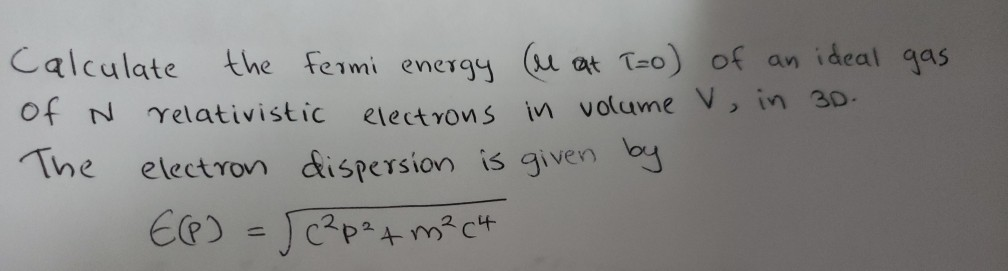 Calculate the fermi energy (μ at T=0) of an ideal gas
of N relativistic electrons in volume V, in 3D.
The electron dispersion is given by
ϵ(p) = √(c²p² + m²c⁴)